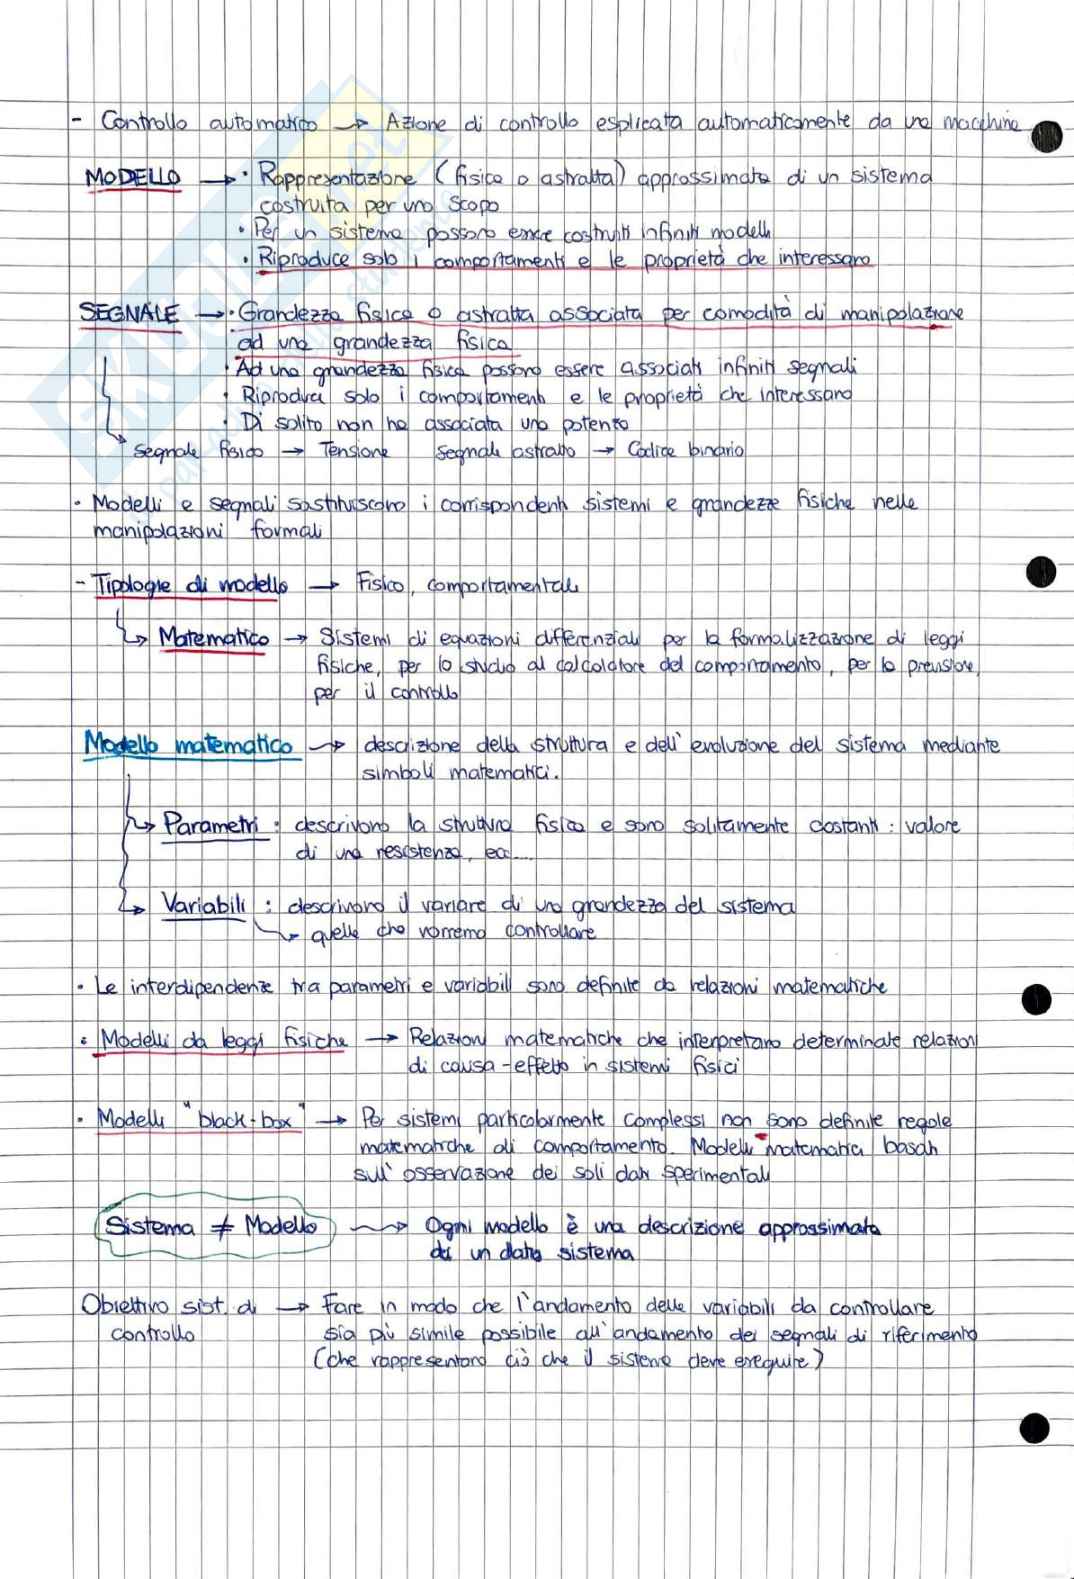 - Controllo automatico → Azione di controllo esplicata automaticamente da una macchina
MODELLO → · Rappresentazione (fisica o astratta) approssimata di un sistema
costruita per uno scopo
· Per un sistema possono essere costruiti infiniti modelli
· Riproduce solo i comportamenti e le proprietà che interessano
SEGNALE → · Grandezza fisica o astratta associata per comodità di manipolazione
ad una grandezza fisica
· Ad una grandezza fisica possono essere associati infiniti segnali
· Riproduce solo i comportamenti e le proprietà che interessano
· Di solito non ha associata una potenza
Segnale fisico → Tensione Segnale astratto → Codice binario
· Modelli e segnali sostituiscono i corrispondenti sistemi e grandezze fisiche nelle
manipolazioni formali
- Tipologie di modello → Fisico, comportamentale
↳ Matematico → Sistemi di equazioni differenziali per la formalizzazione di leggi
fisiche, per lo studio al calcolatore del comportamento, per la previsione,
per il controllo
Modello matematico → descrizione della struttura e dell'evoluzione del sistema mediante
simboli matematici.
↳ Parametri : descrivono la struttura fisica e sono solitamente costanti : valore
di una resistenza, ecc....
↳ Variabili : descrivono il variare di una grandezza del sistema
↳ quelle che vorremo controllare
· Le interdipendenze tra parametri e variabili sono definite da relazioni matematiche
· Modelli da leggi fisiche → Relazioni matematiche che interpretano determinate relazioni
di causa-effetto in sistemi fisici
· Modelli "black-box" → Per sistemi particolarmente complessi non sono definite regole
matematiche di comportamento. Modelli matematici basati
sull'osservazione dei soli dati sperimentali
Sistema ≠ Modello → Ogni modello è una descrizione approssimata
di un dato sistema
Obiettivo sist. di → Fare in modo che l'andamento delle variabili da controllare
controllo sia più simile possibile all'andamento dei segnali di riferimento
(che rappresentano ciò che il sistema deve eseguire)